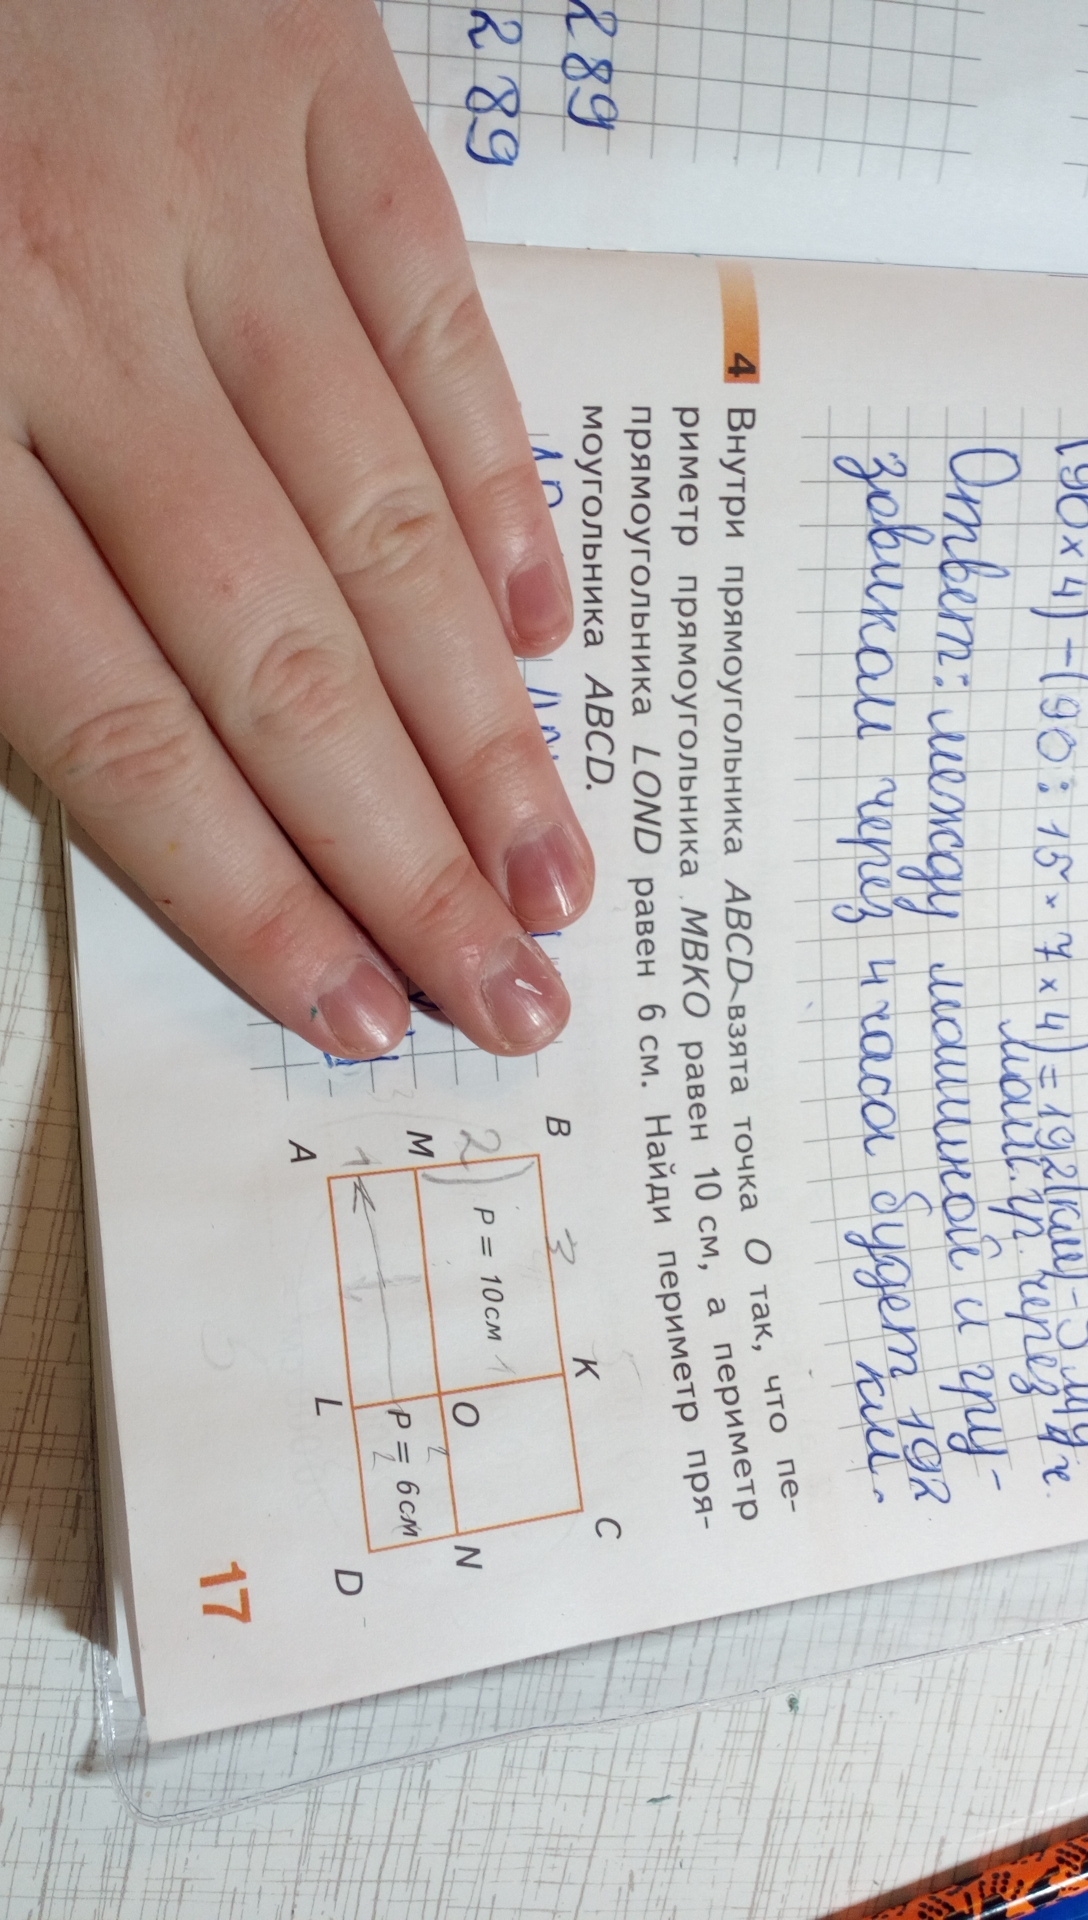 289
289
(90 × 4) − (90 : 15 × 7 × 4) = 192 (км) −
маш. гр. через 4 ч.
Ответ: между машиной и гру-
зовиком через 4 часа будет 192 км.
4 Внутри прямоугольника ABCD взята точка O так, что пе-
риметр прямоугольника MBKO равен 10 см, а периметр
прямоугольника LOND равен 6 см. Найди периметр пря-
моугольника ABCD.
B K C
2) 3
P = 10 см 1
M O N
1 2
P = 6 см
2
A L D
17